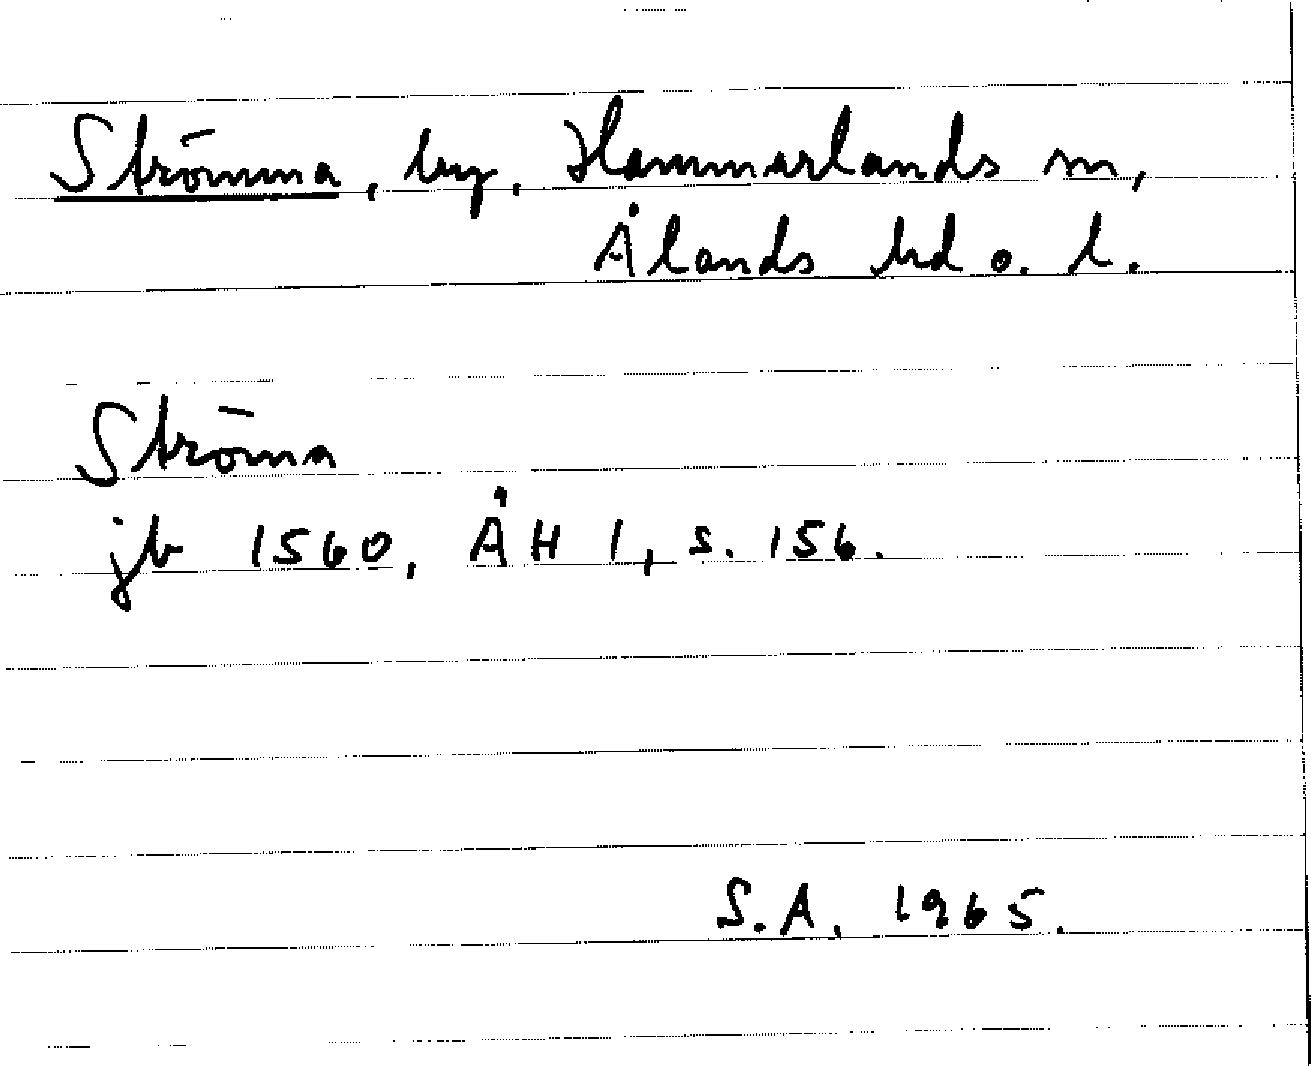 Strömma, by, Hammarlands sn,
Ålands hd o. l.
Ströma
jb 1560, ÅH 1, s. 156.
S.A. 1965.